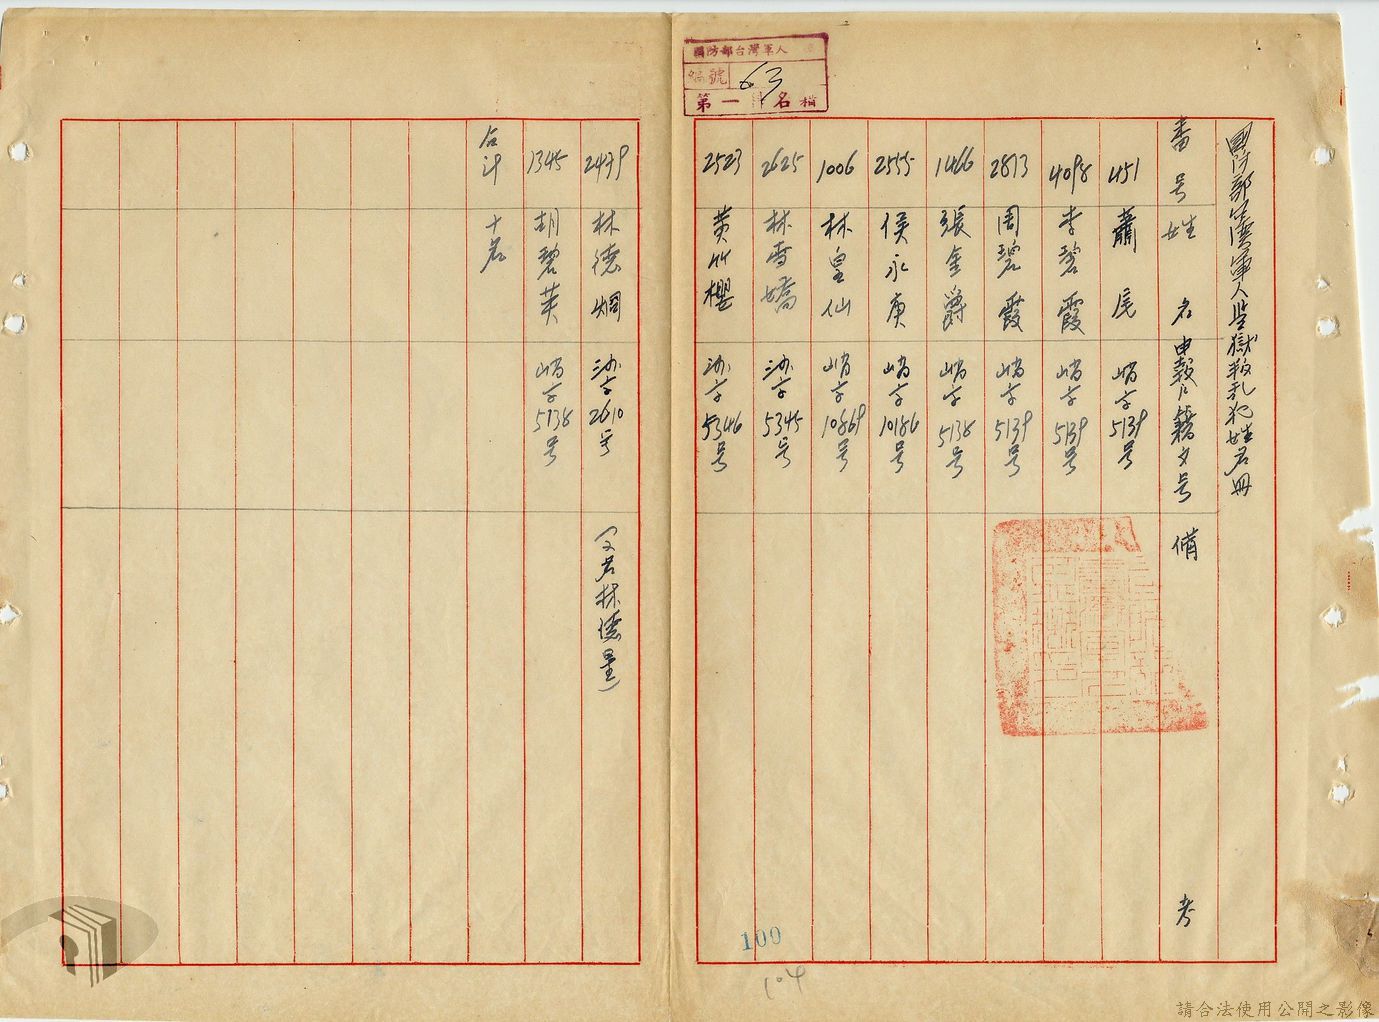 國防部台灣軍人
編號 63
第一 名 楷
國防部台灣軍人監獄叛乱犯姓名冊
番号 姓名 申報戶籍文号 備考
451 蕭尾 嵨字5139号
4098 李碧霞 嵨字5139号
2813 周碧霞 嵨字5139号
1466 張金爵 嵨字5138号
2555 侯永庚 嵨字10186号
1006 林皇仙 嵨字10869号
2625 林雪嬌 泐字5345号
2523 黃竹櫻 泐字5346号
2439 林德烱 泐字2610号 (又名林德星)
1345 胡碧英 嵨字5138号
合计 十名
100
104
請合法使用公開之影像